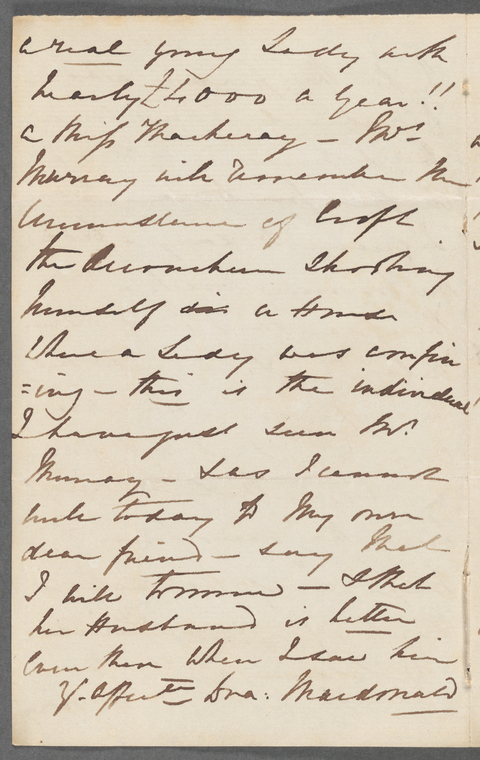 a real young Lady with
nearly £4000 a year!!
a Miss Thackeray - Mrs
Murray will remember the
circumstance of Croft
the Accoucheur Shooting
himself in a House
where a Lady was confin
=ing - this is the individual!
I have just seen Mr
Murray - & as I cannot
write today to My own
dear friend - say that
I will tomorrow - & that
her Husband is better
Even than when I saw him
Yr. Affecte Dra: Macdonald